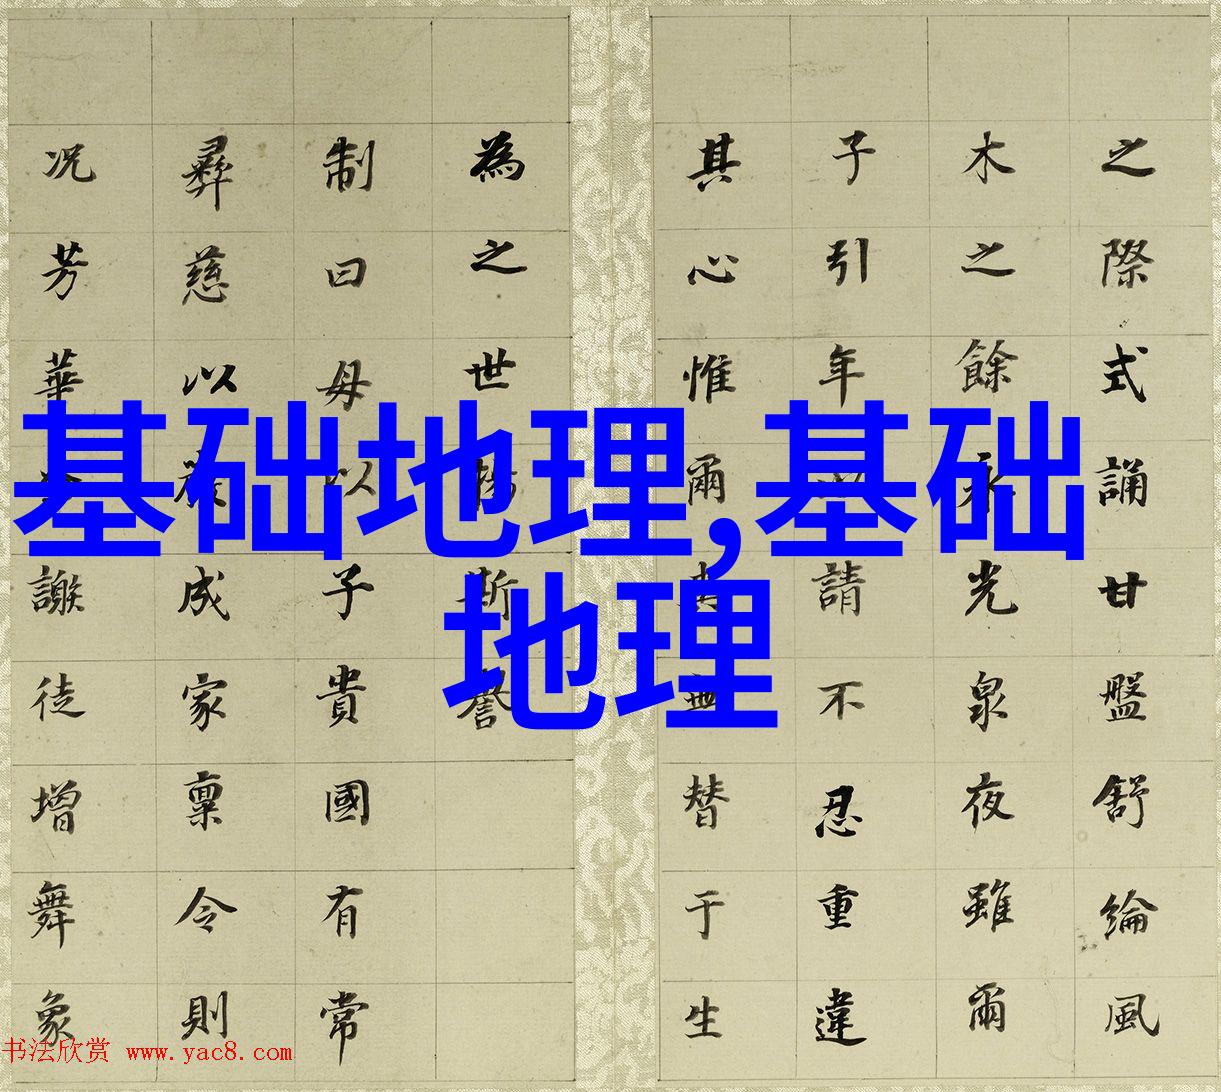 之際式誦甘盤舒綸風
木之餘永光泉夜雖爾
子引年以請不忍重違
其心惟爾替于生
為之世揚斯譽
制曰母以子貴國有常
彞慈以嚴成家稟令則
況芳華謝徒增舞象
基础地理,基础
地理
书法欣赏 www.yac8.com